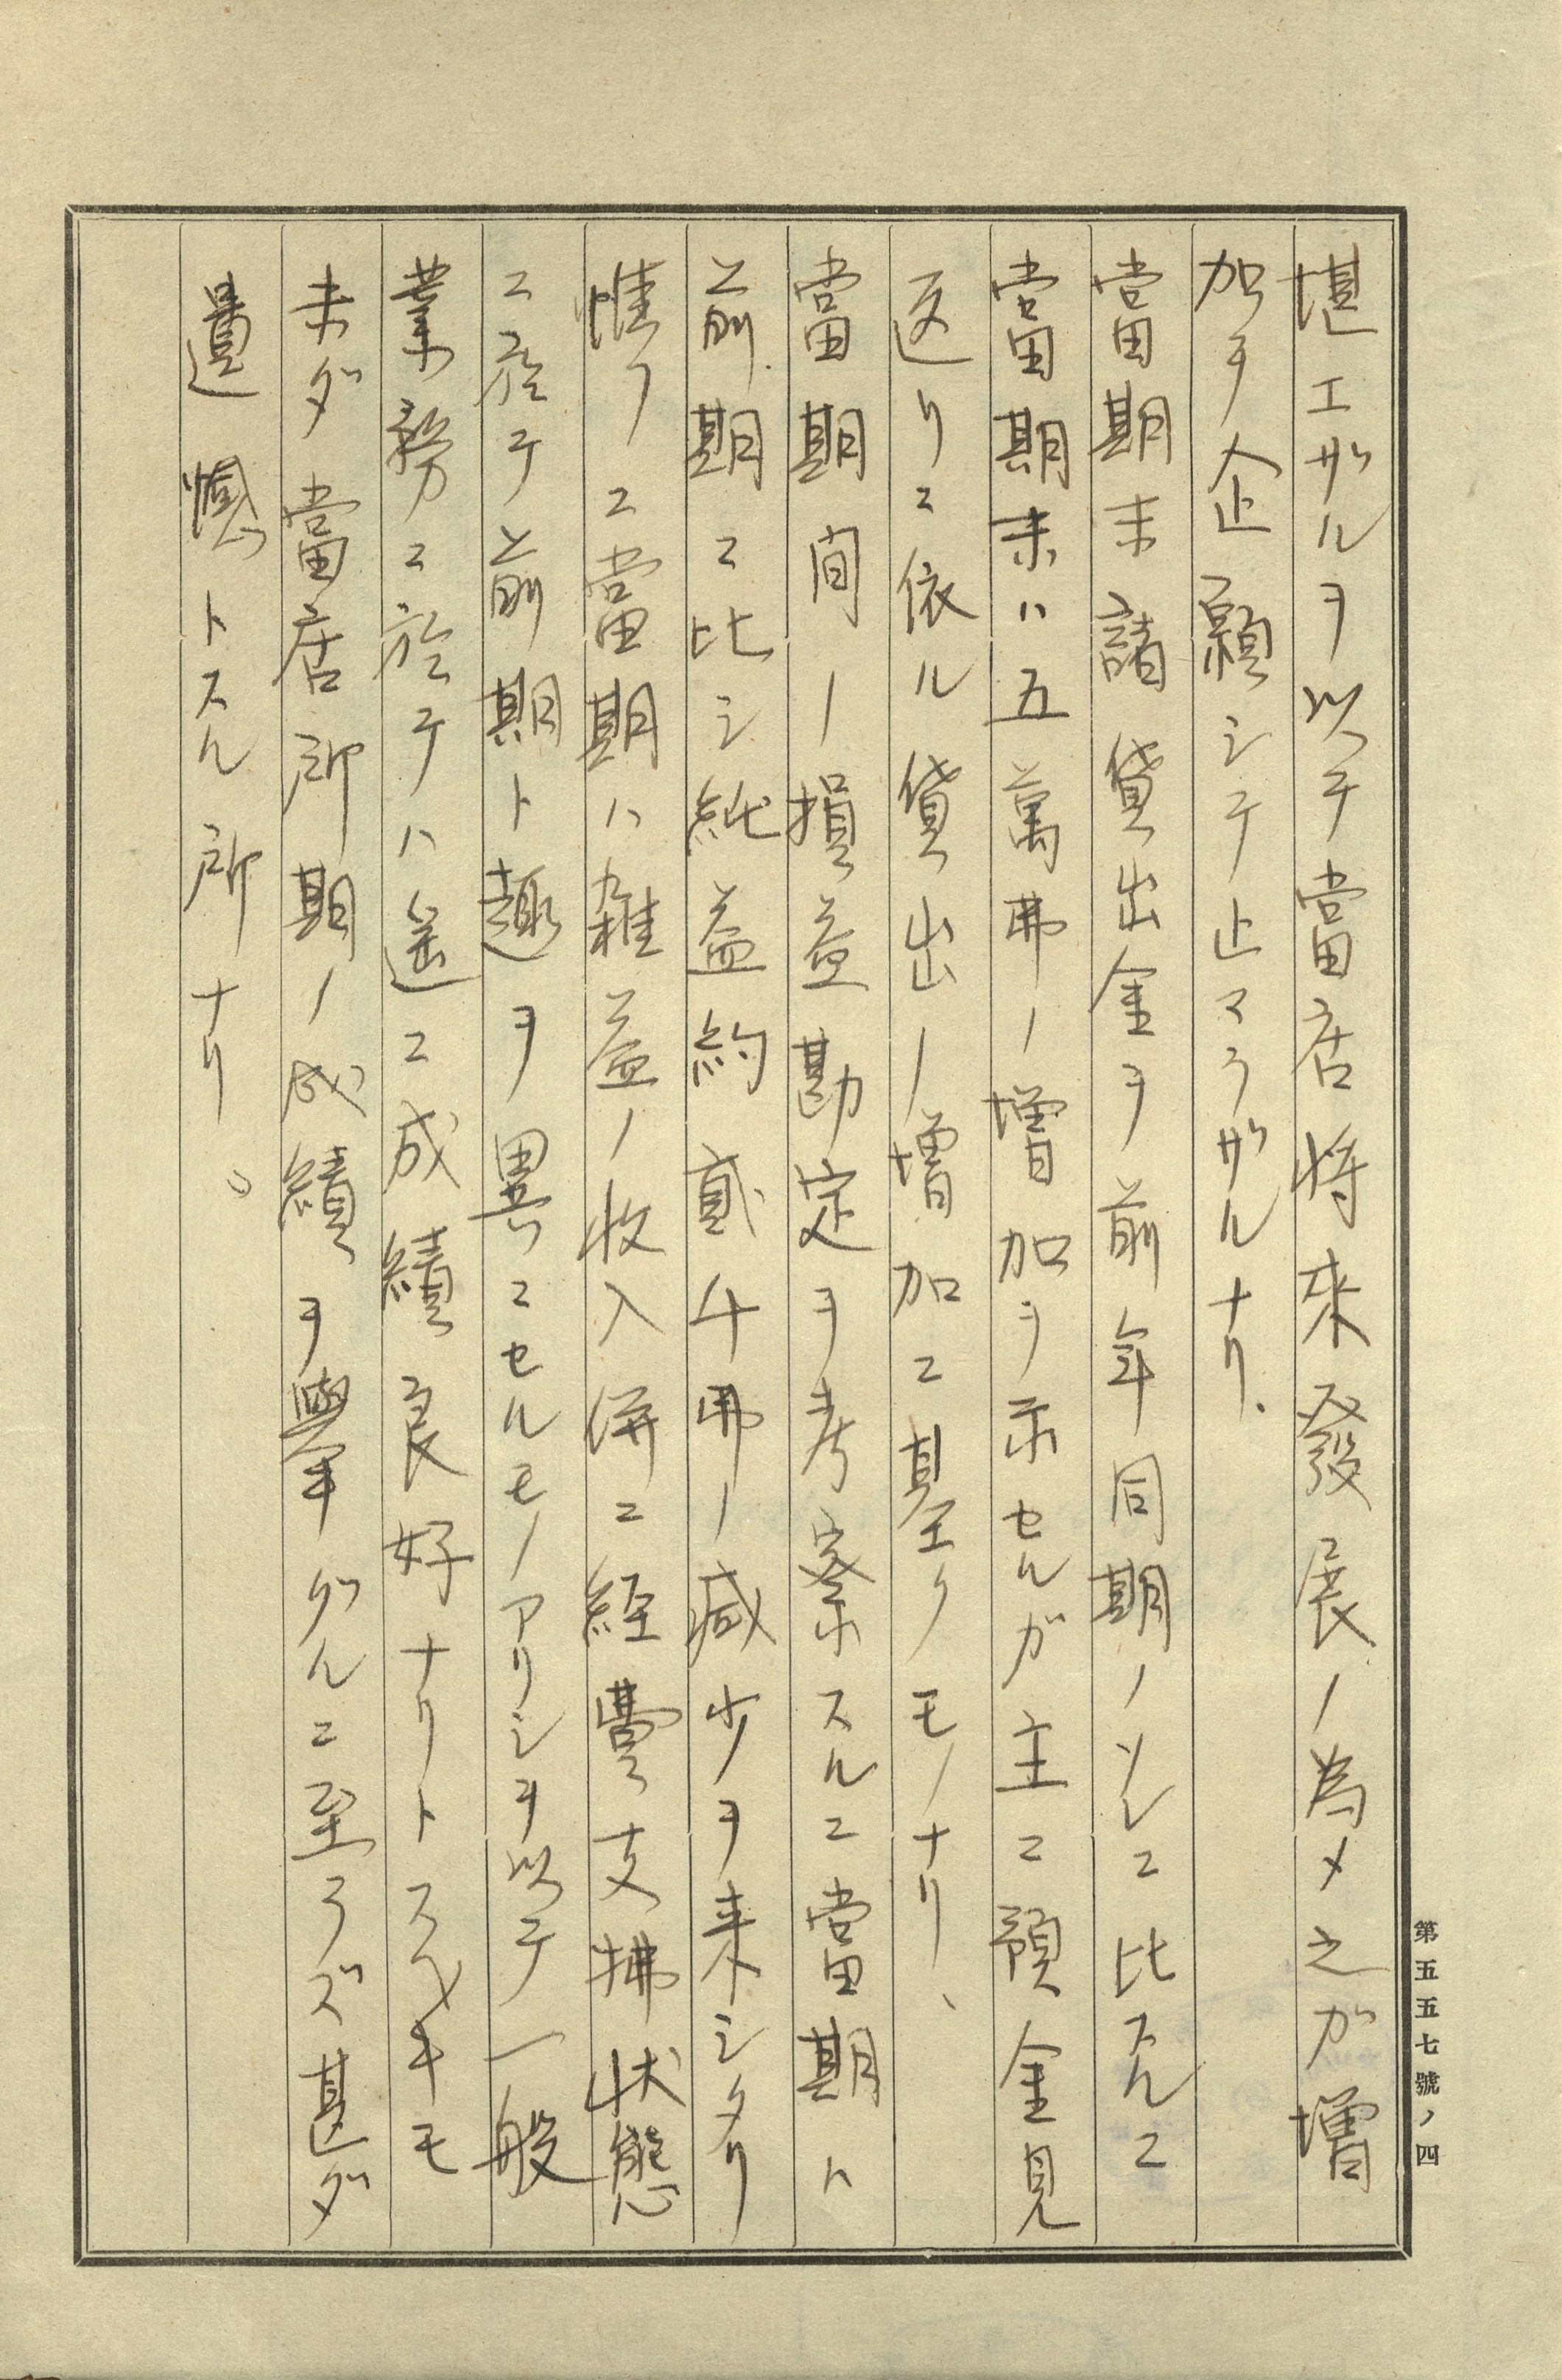 堪エザルヲ以テ當店將來發展ノ為メ之ガ增
加ヲ企願シテ止マラザルナリ、
當期末諸貸出金ヲ前年同期ノソレニ比スルニ
當期末ハ五萬弗ノ增加ヲ示セルガ主ニ預金見
返リニ依ル貸出ノ增加ニ基クモノナリ、
當期間ノ損益勘定ヲ考察スルニ當期ハ
前期ニ比シ純益約貳千弗ノ減少ヲ来シタリ
惟フニ當期ハ雑益ノ收入併ニ経費支拂狀態
ニ於テ前期ト趣ヲ異ニセルモノアリシヲ以テ一般
業務ニ於テハ遥ニ成績良好ナリトスベキモ
未ダ當店所期ノ成績ヲ擧グルニ至ラズ甚ダ
遺憾トスル所ナリ。
第五五七號ノ四